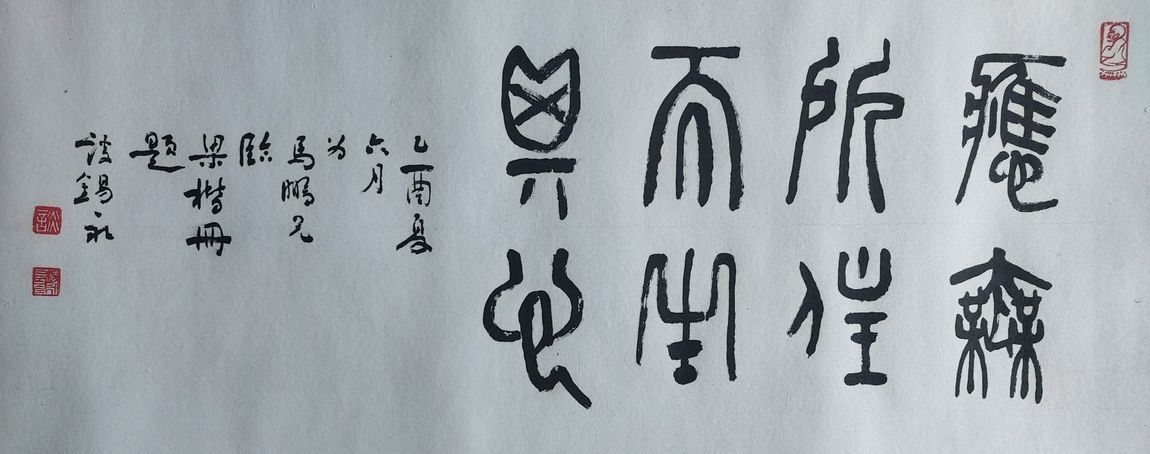 應無
所住
而生
其心
乙酉夏
六月
为
馬鵬兄
臨
梁楷冊
題
談錫永